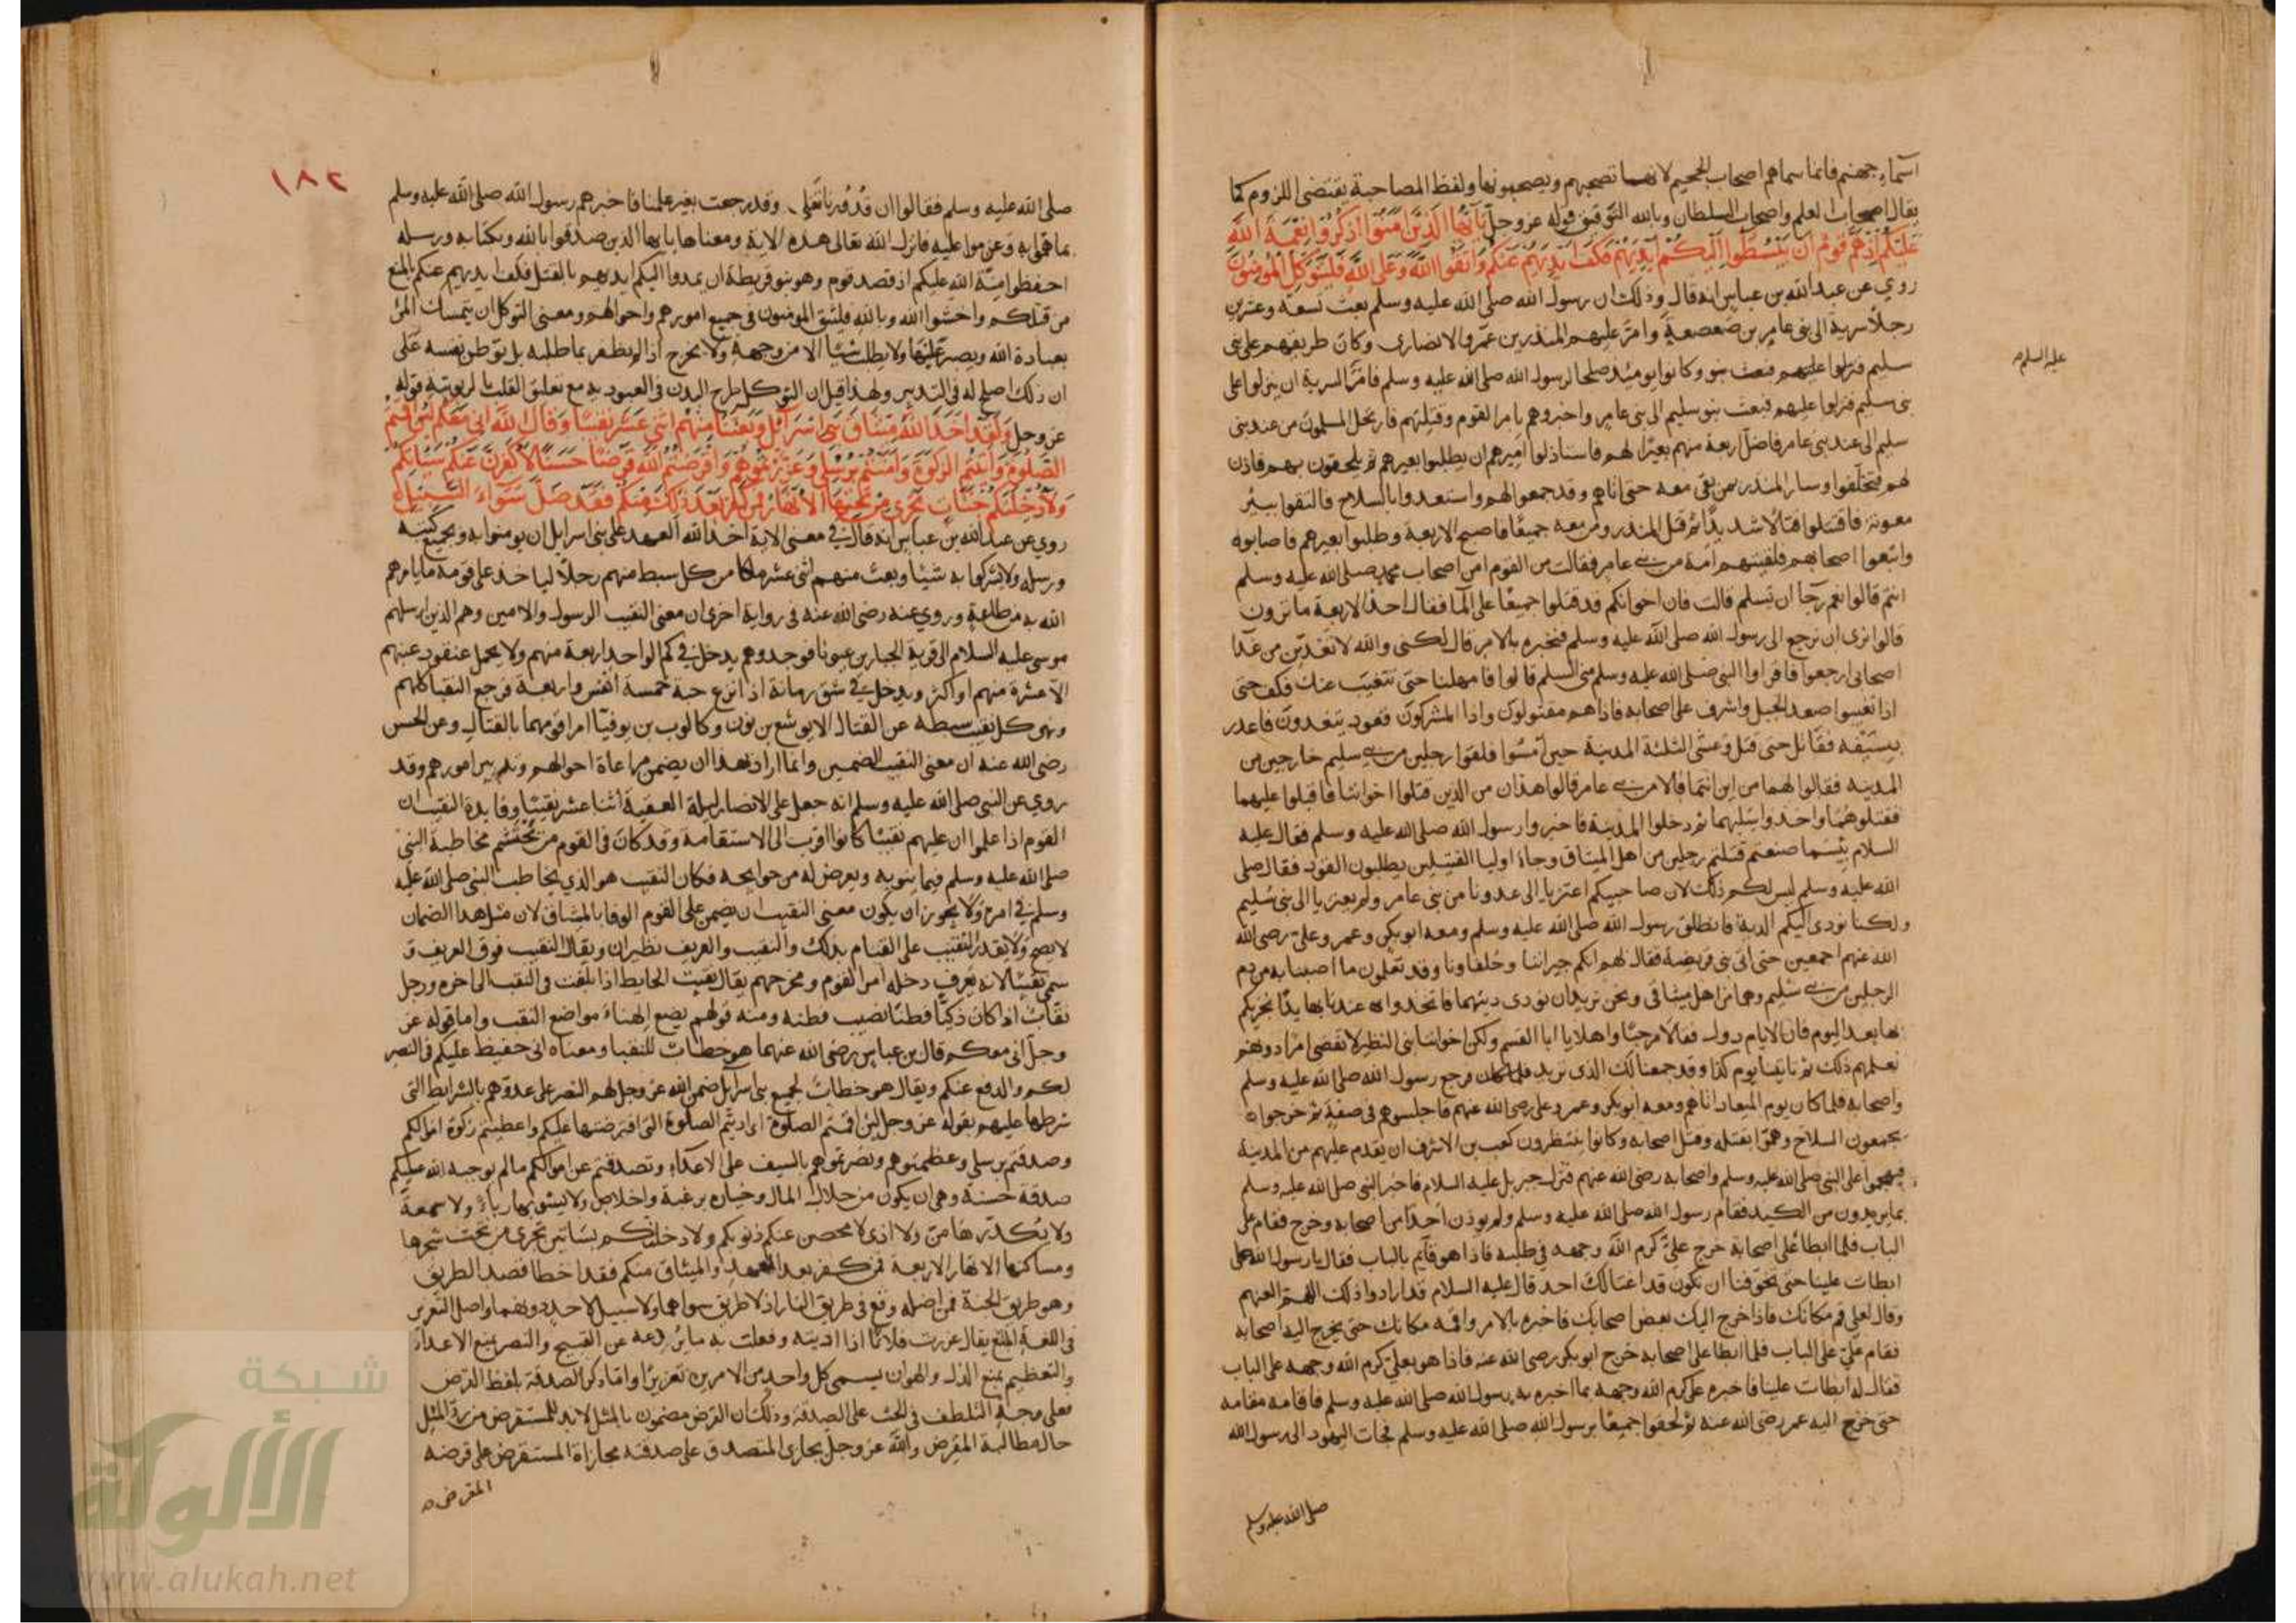 اسماء جهنم فانما سماهم اصحاب الجحيم لانهما تصحبهم ويصحبونها ولفظ المصاحبة يقتضى اللزوم كما
يقال اصحاب العلم واصحاب السلطان وبالله التوفيق قوله عز وجل يا ايها الذين امنوا اذكروا نعمة الله
عليكم اذ هم قوم ان يبسطوا اليكم ايديهم فكف ايديهم عنكم واتقوا الله وعلى الله فليتوكل المومنون
روي عن عبد الله بن عباس انه قال وذلك ان رسول الله صلى الله عليه وسلم بعث تسعة وعشرين
رجلا سرية الى بنى عامر بن صعصعة وامر عليهم المنذر بن عمرو الانصارى وكان طريقهم على بنى
عليه السلام
سليم فنزلوا عليهم فبعث بنو وكانوا يومئذ صلحا لرسول الله صلى الله عليه وسلم فامر السرية ان ينزلوا على
بنى سليم فنزلوا عليهم فبعث بنو سليم الى بنى عامر واخبروهم بامر القوم وقلتهم فارتحل المسلمون من عند بنى
سليم الى عند بنى عامر فاضل اربعة منهم بعيرا لهم فاستاذنوا اميرهم ان يطلبوا بعيرهم ثم يلحقون بهم فاذن
لهم فتخلفوا وسار المنذر بمن بقى معه حتى اتاهم وقد جمعوا لهم واستعدوا بالسلاح فالتقوا ببئر
معونة فاقتتلوا قتالا شديدا ثم قتل المنذر ومن معه جميعا فاصبح الاربعة وطلبوا بعيرهم فاصابوه
واتبعوا اصحابهم فلقيتهم امة من بنى عامر فقالت من القوم امن اصحاب محمد صلى الله عليه وسلم
انتم قالوا نعم رجا ان تسلم قالت فان اخوانكم قد قتلوا جميعا على الما فقال احد الاربعة ما ترون
قالوا نرى ان نرجع الى رسول الله صلى الله عليه وسلم فنخبره بالامر قال لكنى والله لا نغدين من غدا
اصحابى ارجعوا فاقراوا النبى صلى الله عليه وسلم منى السلم قالوا فامهلنا حتى نتغيب عنك فكف حتى
اذا تغيبوا صعد الجبل واشرف على اصحابه فاذا هم مقتولون واذا المشركون قعود يتغدون فاعدر
بسيفه فقاتل حتى قتل وعشى الثلثة المدينة حين امسوا فلقوا رجلين من بنى سليم خارجين من
المدينه فقالوا لهما من اين انتما قالا من بنى عامر قالوا هذان من الذين قتلوا اخواننا فاقبلوا عليهما
فقتلوهما واخذوا سلبهما ثم دخلوا المدينة فاخبروا رسول الله صلى الله عليه وسلم فقال عليه
السلام بئسما صنعتم قتلتم رجلين من اهل الميثاق وجاء اوليا القتيلين يطلبون القود فقال صلى
الله عليه وسلم ليس لكم ذلك لان صاحبيكم اعتزيا الى عدونا من بنى عامر ولم يعتزيا الى بنى سليم
ولكنا نودى اليكم الدية فانطلق رسول الله صلى الله عليه وسلم ومعه ابو بكر وعمر وعلى رضى الله
الله عنهم اجمعين حتى اتى بنى قريضة فقال لهم انكم جيراننا وحلفاونا وقد تعلمون ما اصبنا به من دم
الرجلين من بنى سليم وهما من اهل ميثاقى ونحن نريد ان نودى ديتهما فاتخذوا عندنا بها يدا نجزيكم
بها بعد اليوم فان الايام دول فقالا مرحبا واهلا يا ابا القسم ولكن اخواننا بنى النظير لا نقضى امرا دونهم
نعلمهم ذلك ثم تايتنا يوم كذا وقد جمعنا لك الذى تريد فرجع رسول الله صلى الله عليه وسلم
واصحابه فلما كان يوم الميعاد اتاهم ومعه ابو بكر وعمر وعلى رضى الله عنهم فاجلسوهم فى صفة ثم خرجوا
يجمعون السلاح وهموا بقتله وقتل اصحابه وكانوا ينتظرون كعب بن الاشرف ان يقدم عليهم من المدينة
فيهجموا على النبى صلى الله عليه وسلم واصحابه رضى الله عنهم فنزل جبريل عليه السلام فاخبر النبى صلى الله عليه وسلم
بما يريدون من الكيد فقام رسول الله صلى الله عليه وسلم ولم يوذن احدا من اصحابه وخرج فقام على
الباب فلما ابطا على اصحابه خرج على كرم الله وجهه فى طلبه فاذا هو قايم بالباب فقال يا رسول الله
ابطات علينا حتى تخوفنا ان يكون قد اغتالك احد قال عليه السلام قد ارادوا ذلك
وقال لعلى قم مكانك فاذا خرج اليك بعض اصحابك فاخبره بالامر واقمه مكانك حتى يخرج اليه اصحابه
فقام على على الباب فلما ابطا على اصحابه خرج ابو بكر رضى الله عنه فاذا هو بعلى كرم الله وجهه على الباب
فقال له ابطات علينا فاخبره على كرم الله وجهه بما اخبره به رسول الله صلى الله عليه وسلم فاقامه مقامه
حتى خرج اليه عمر رضى الله عنه ثم لحقوا جميعا برسول الله صلى الله عليه وسلم فجات اليهود الى رسول الله
صلى الله عليه وسلم
١٨٢
صلى الله عليه وسلم فقالوا ان قدورنا تغلى وقد رجعت بغير علمنا فاخبرهم رسول الله صلى الله عليه وسلم
بما هموا به وعزموا عليه فانزل الله تعالى هذه الاية ومعناها يا ايها الذين صدقوا بالله وبكتابه ورسله
احفظوا منة الله عليكم اذ قصد قوم وهو بنو قريظة ان يمدوا اليكم ايديهم بالقتل فكف ايديهم عنكم بالمنع
من قتلكم واخشوا الله وبالله فليثق المومنون فى جميع امورهم واحوالهم ومعنى التوكل ان يتمسك المر
بعبادة الله ويصبر عليها ولا يطلب شيا الا من وجهه ولا يخرج اذا لم يظفر بما طلبه بل يوطن نفسه على
ان ذلك اصلح له فى التدبير ولهذا قيل ان التوكل طرح البدن فى العبوديه مع تعلق القلب بالربوبية قوله
عز وجل ولقد اخذ الله ميثاق بنى اسرائيل وبعثنا منهم اثنى عشر نقيبا وقال الله انى معكم لئن اقمتم
الصلوة واتيتم الزكوة وامنتم برسلى وعزرتموهم واقرضتم الله قرضا حسنا لاكفرن عنكم سيئاتكم
ولادخلنكم جنات تجرى من تحتها الانهار فمن كفر بعد ذلك منكم فقد ضل سواء السبيل
روي عن عبد الله بن عباس انه قال فى معنى الاية اخذ الله العهد على بنى اسرايل ان يومنوا به وبجميع كتبه
ورسله ولا يشركوا به شيئا وبعث منهم اثنى عشر ملكا من كل سبط منهم رجلا لياخذ على قومه ما يامرهم
الله به من طاعة وروي عنه رضى الله عنه فى رواية اخرى ان معنى النقيب الرسول والامين وهم الذين ارسلهم
موسى عليه السلام الى قرية الجبارين عيونا فوجدوهم يدخل فى كم الواحد اربعة منهم ولا يحمل عنقود عنبهم
الا عشرة منهم او اكثر ويدخل فى شق رمانة اذا نزع حبه خمسة انفس واربعة فرجع النقبا كلهم
ونهى كل نقيب سبطه عن القتال الا يوشع بن نون وكالوب بن يوفنا امرا قومهما بالقتال وعن الحسن
رضى الله عنه ان معنى النقيب الضمين وانما اراد بهذا ان يضمن مراعاة احوالهم وتدبير امورهم وقد
روي عن النبى صلى الله عليه وسلم انه جعل على الانصار ليلة العقبة اثنا عشر نقيبا وفايدة النقيب ان
القوم اذا علموا ان عليهم نقيبا كانوا اقرب الى الاستقامة وقد كان فى القوم من يحتشم مخاطبة النبى
صلى الله عليه وسلم فيما ينوبه ويعرض له من حوايجه فكان النقيب هو الذي يخاطب النبى صلى الله عليه
وسلم فى امره ولا يجوز ان يكون معنى النقيب ان يضمن على القوم الوفا بالمثاق لان مثل هذا الضمان
لا يصح ولا يقدر النقيب على القيام بذلك والنقيب والعريف نظيران ويقال النقيب فوق العريف
سمى نقيبا لانه يعرف دخلة امر القوم ومخرجهم يقال نقبت الحايط اذا بلغت فى النقب الى اخره ورجل
نقاب اذا كان ذكيا فطنا تصيب فطنه ومنه قولهم يضع الهناء مواضع النقب واما قوله عز
وجل انى معكم قال بن عباس رضى الله عنهما هو خطاب للنقبا ومعناه انى حفيظ عليكم فى النصر
لكم والدفع عنكم ويقال هو خطاب لجميع بنى اسرايل ضمن الله عز وجل لهم النصر على عدوهم بالشرايط التى
شرطها عليهم بقوله عز وجل لئن اقمتم الصلوة اى اديتم الصلوة التى افترضتها عليكم واعطيتم زكوة اموالكم
وصدقتم برسلى وعظمتموهم ونصرتموهم بالسيف على الاعداء وتصدقتم عن اموالكم ما لم يوجبه الله عليكم
صدقة حسنة وهى ان يكون من حلال المال وخياره برغبة واخلاص ولا يشوبها رياء ولا سمعة
ولا يكدرها من ولا اذى لامحصن عنكم ذنوبكم ولادخلنكم بساتين تجرى من تحت شجرها
ومساكنها الانهار الاربعة فمن كفر بعد العهد والميثاق منكم فقد اخطا قصد الطريق
وهو طريق الجنة فمن اضله وقع فى طريق النار اذ لا طريق سواهما ولا سبيل لاحد دونهما واصل التعزير
فى اللغة المنع يقال عزرت فلانا اذا ادبته وفعلت به ما يردعه عن القبيح والنصر يمنع الاعداء
والتعظيم يمنع الذل والهوان يسمى كل واحد من الامرين تعزيرا واما ذكر الصدقة بلفظ القرض
فعلى وجه التلطف فى الحث على الصدقة وذلك ان القرض مضمون بالمثل لابد للمستقرض من رد المثل
حال مطالبة المقرض والله عز وجل يجازى المتصدق على صدقته مجازاة المستقرض على قرضه
المقرض
شبكة
الألوكة
www.alukah.net